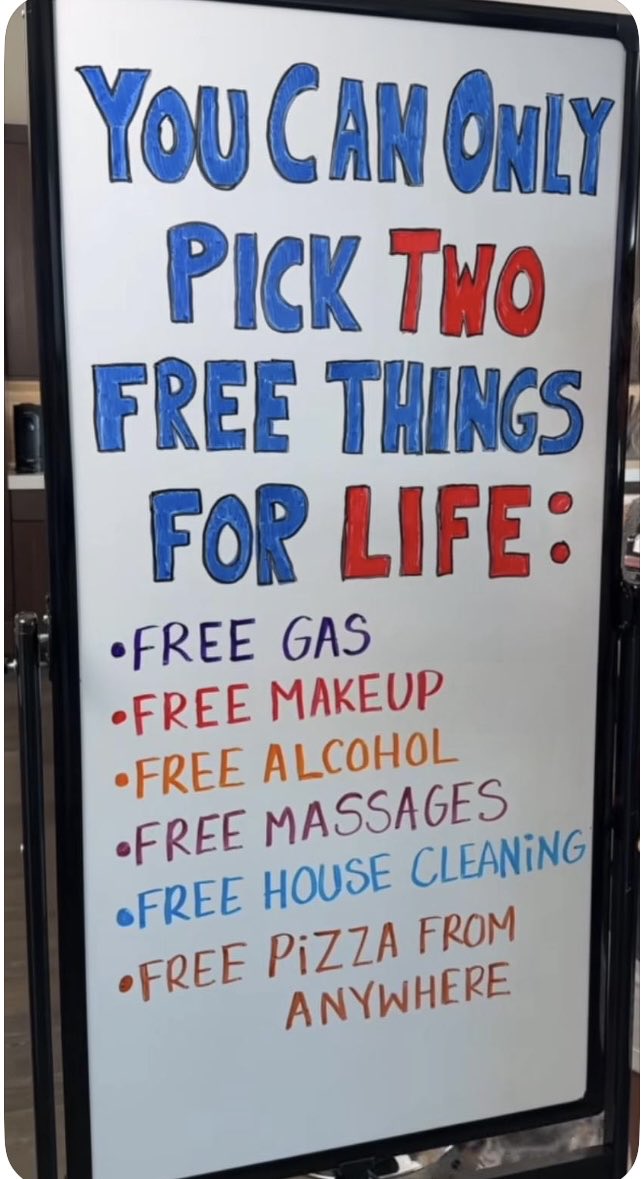 YOU CAN ONLY
PICK TWO
FREE THINGS
FOR LIFE:
•FREE GAS
•FREE MAKEUP
•FREE ALCOHOL
•FREE MASSAGES
•FREE HOUSE CLEANiNG
•FREE PiZZA FROM
ANYWHERE